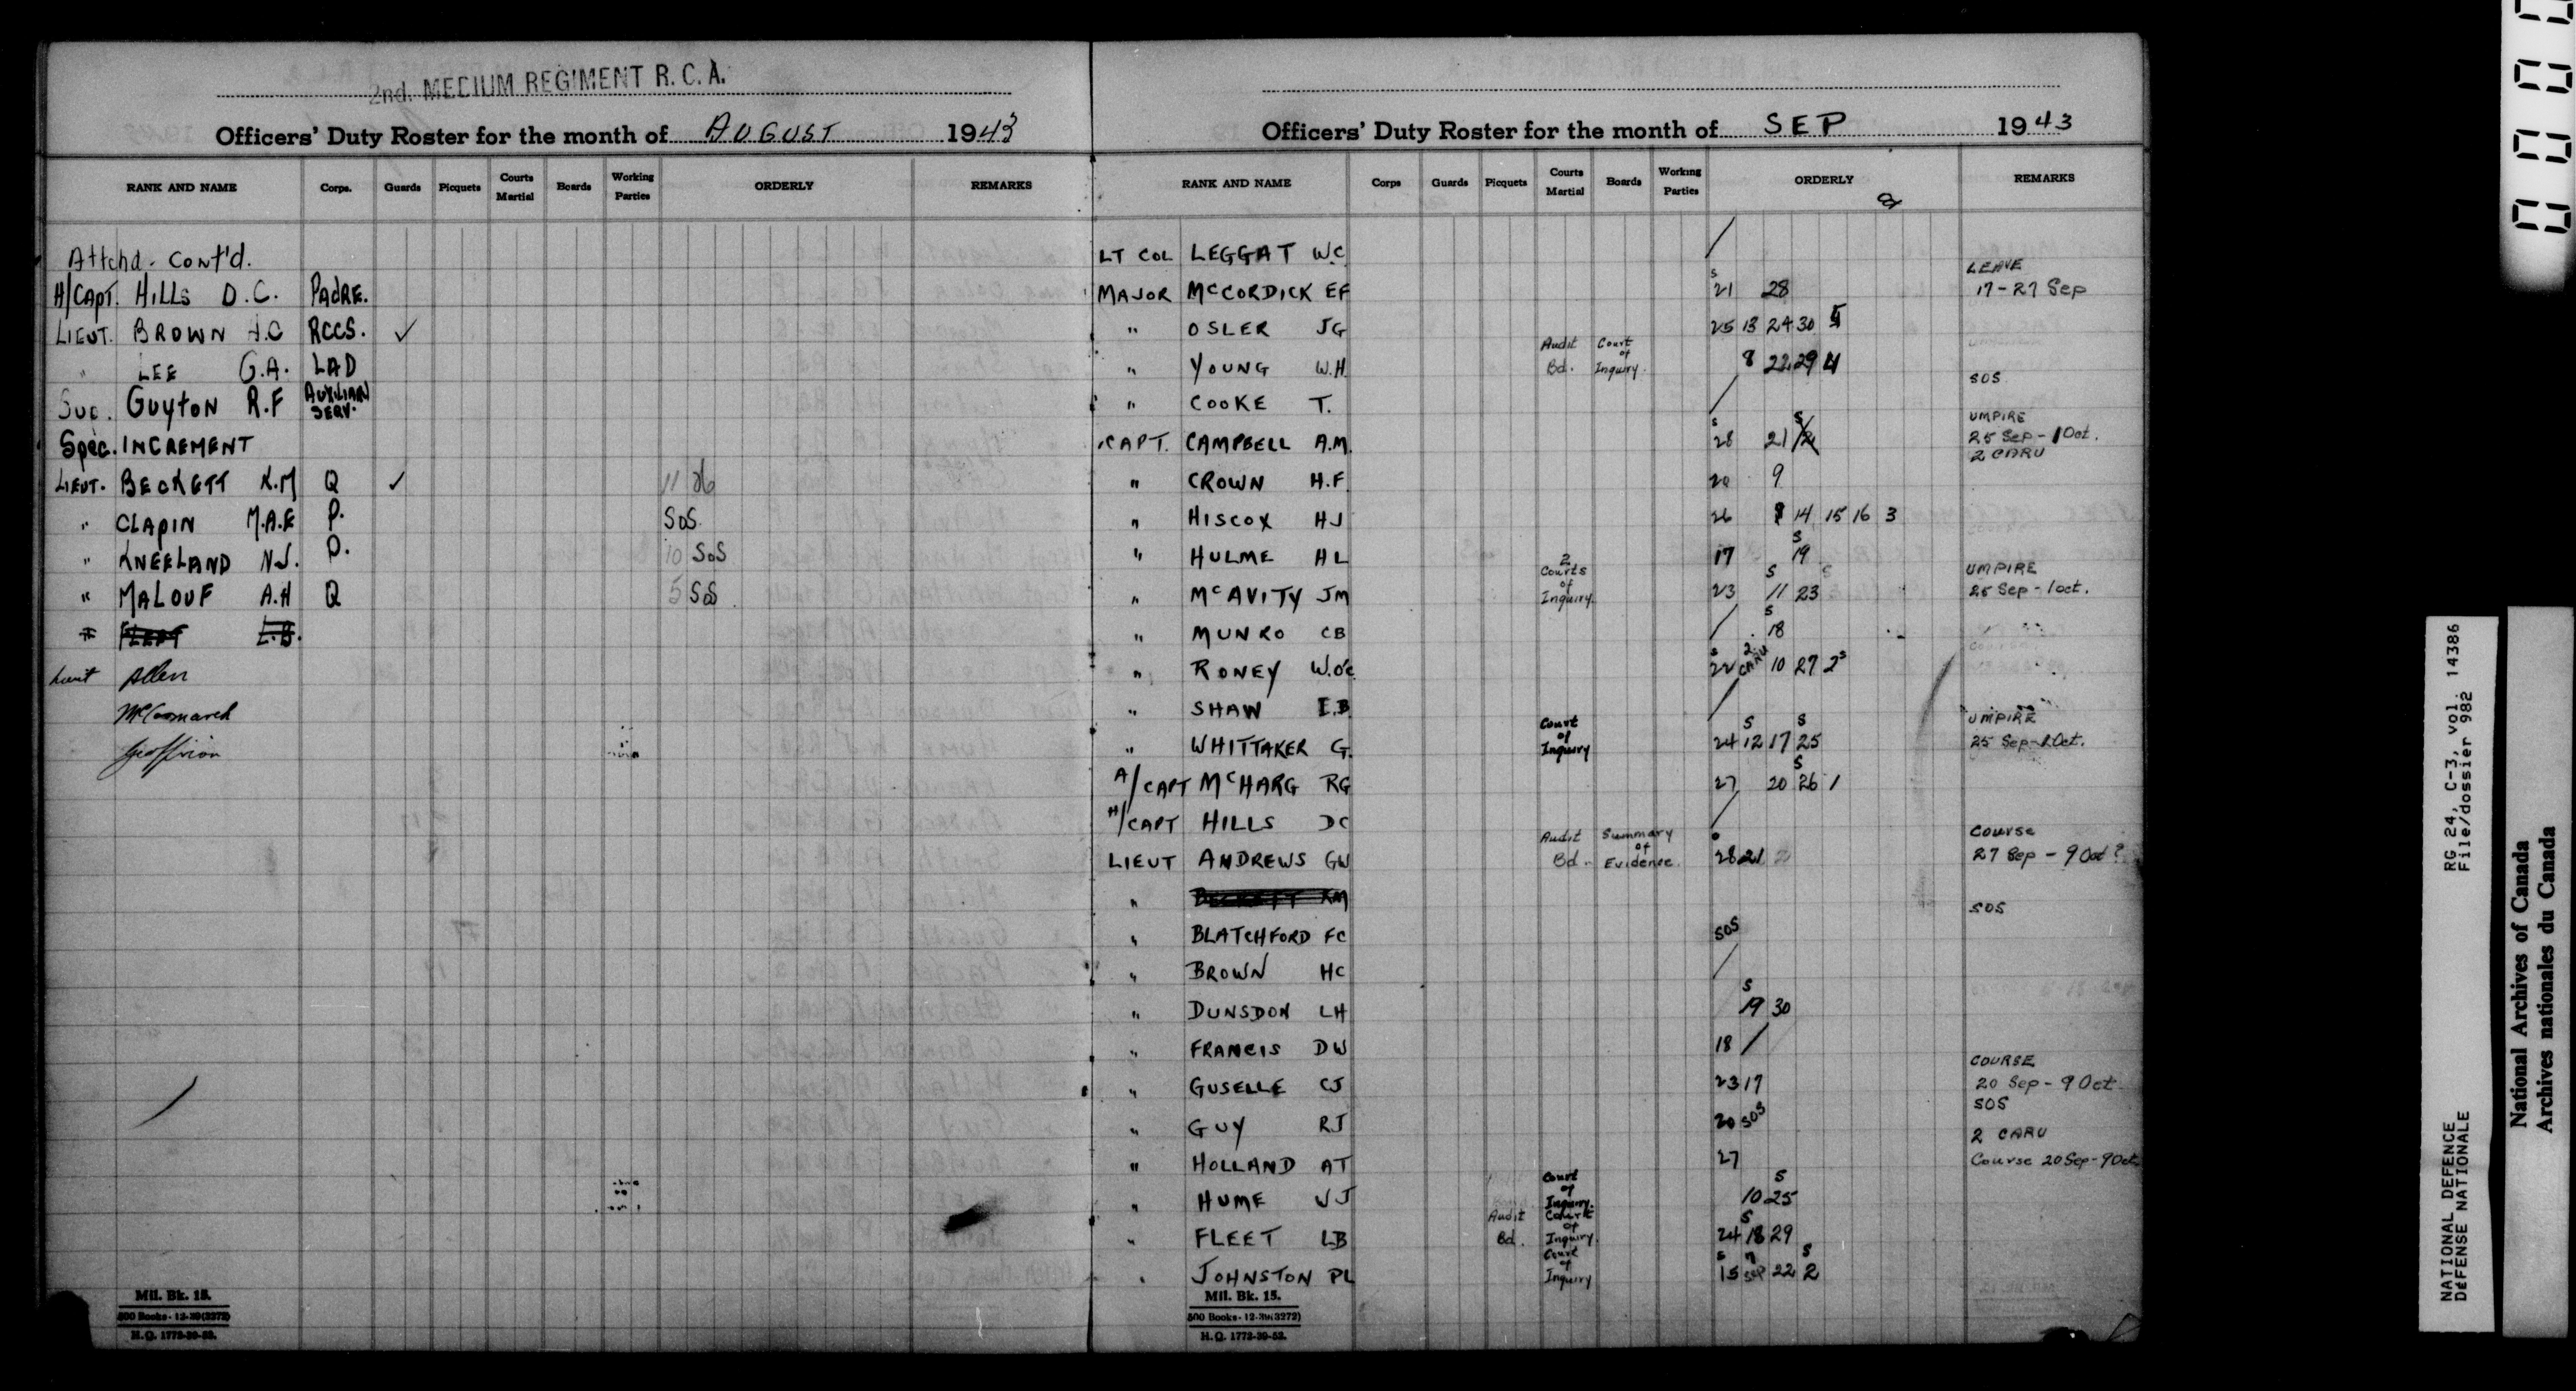 2nd. MEDIUM REGIMENT R.C.A.
Officers' Duty Roster for the month of AUGUST 1943
RANK AND NAME Corps. Guards Picquets Courts Martial Boards Working Parties ORDERLY REMARKS
Attchd - Cont'd.
H/CAPT. HILLS D.C. PADRE.
LIEUT. BROWN H.C RCCS. ✓
" LEE G.A. LAD
Sup. GUYTON R.F AUXILIARY SERV.
Spec. INCREMENT
LIEUT. BECKETT K.M Q ✓ 11 26
" CLAPIN M.A.E P. SOS.
" KNEELAND N.J. P. 10 SOS
" MALOUF A.H Q 5 SOS
" FLEET L.B.
Lieut Allen
McCormack
Geoffrion
Mil. Bk. 15.
500 Books-12-39(3272)
H.Q. 1772-39-53.
Officers' Duty Roster for the month of SEP 1943
RANK AND NAME Corps Guards Picquets Courts Martial Boards Working Parties ORDERLY REMARKS
LT COL LEGGAT W.C. /
MAJOR McCORDICK EF S 21 28 LEAVE 17-27 Sep
" OSLER JG 25 13 24 30 5
" YOUNG W.H. Audit Bd. Court of Inquiry. 8 22 29 4
" COOKE T. / SOS
CAPT. CAMPBELL A.M. S 28 21 S 2 UMPIRE 25 Sep - 1 Oct.
" CROWN H.F. 20 9 2 CARU
" HISCOX HJ 26 14 15 16 3
" HULME HL 17 S 19
" McAVITY JM 2 Courts of Inquiry. 23 S 11 23 UMPIRE 25 Sep - 1 oct.
" MUNRO CB / S 18
" RONEY W.O'C. S 22 2 CARU 10 27 2 S
" SHAW E.B. /
" WHITTAKER G. Court of Inquiry 24 S 12 17 S 25 UMPIRE 25 Sep - 1 Oct.
A/CAPT McHARG RG 27 20 S 26 1
H/CAPT HILLS DC /
LIEUT ANDREWS GW Audit Bd. Summary of Evidence. 28 21 Course 27 Sep - 9 Oct?
" BECKETT KM
" BLATCHFORD FC SOS SOS
" BROWN HC /
" DUNSDON LH S 19 30
" FRANCIS DW 18 /
" GUSELLE CJ 23 17 COURSE 20 Sep - 9 Oct
" GUY RJ 20 SOS SOS
" HOLLAND AT 27 2 CARU Course 20 Sep - 9 Oct
" HUME VJ Court of Inquiry. 10 S 25
" FLEET LB Audit Bd. Court of Inquiry. 24 S 18 29
" JOHNSTON PL Court of Inquiry S 15 7 Sep 22 S 2
Mil. Bk. 15.
500 Books-12-39(3272)
H.Q. 1772-39-53.
NATIONAL DEFENCE RG 24, C-3, vol. 14386
DÉFENSE NATIONALE File/dossier 982
National Archives of Canada
Archives nationales du Canada